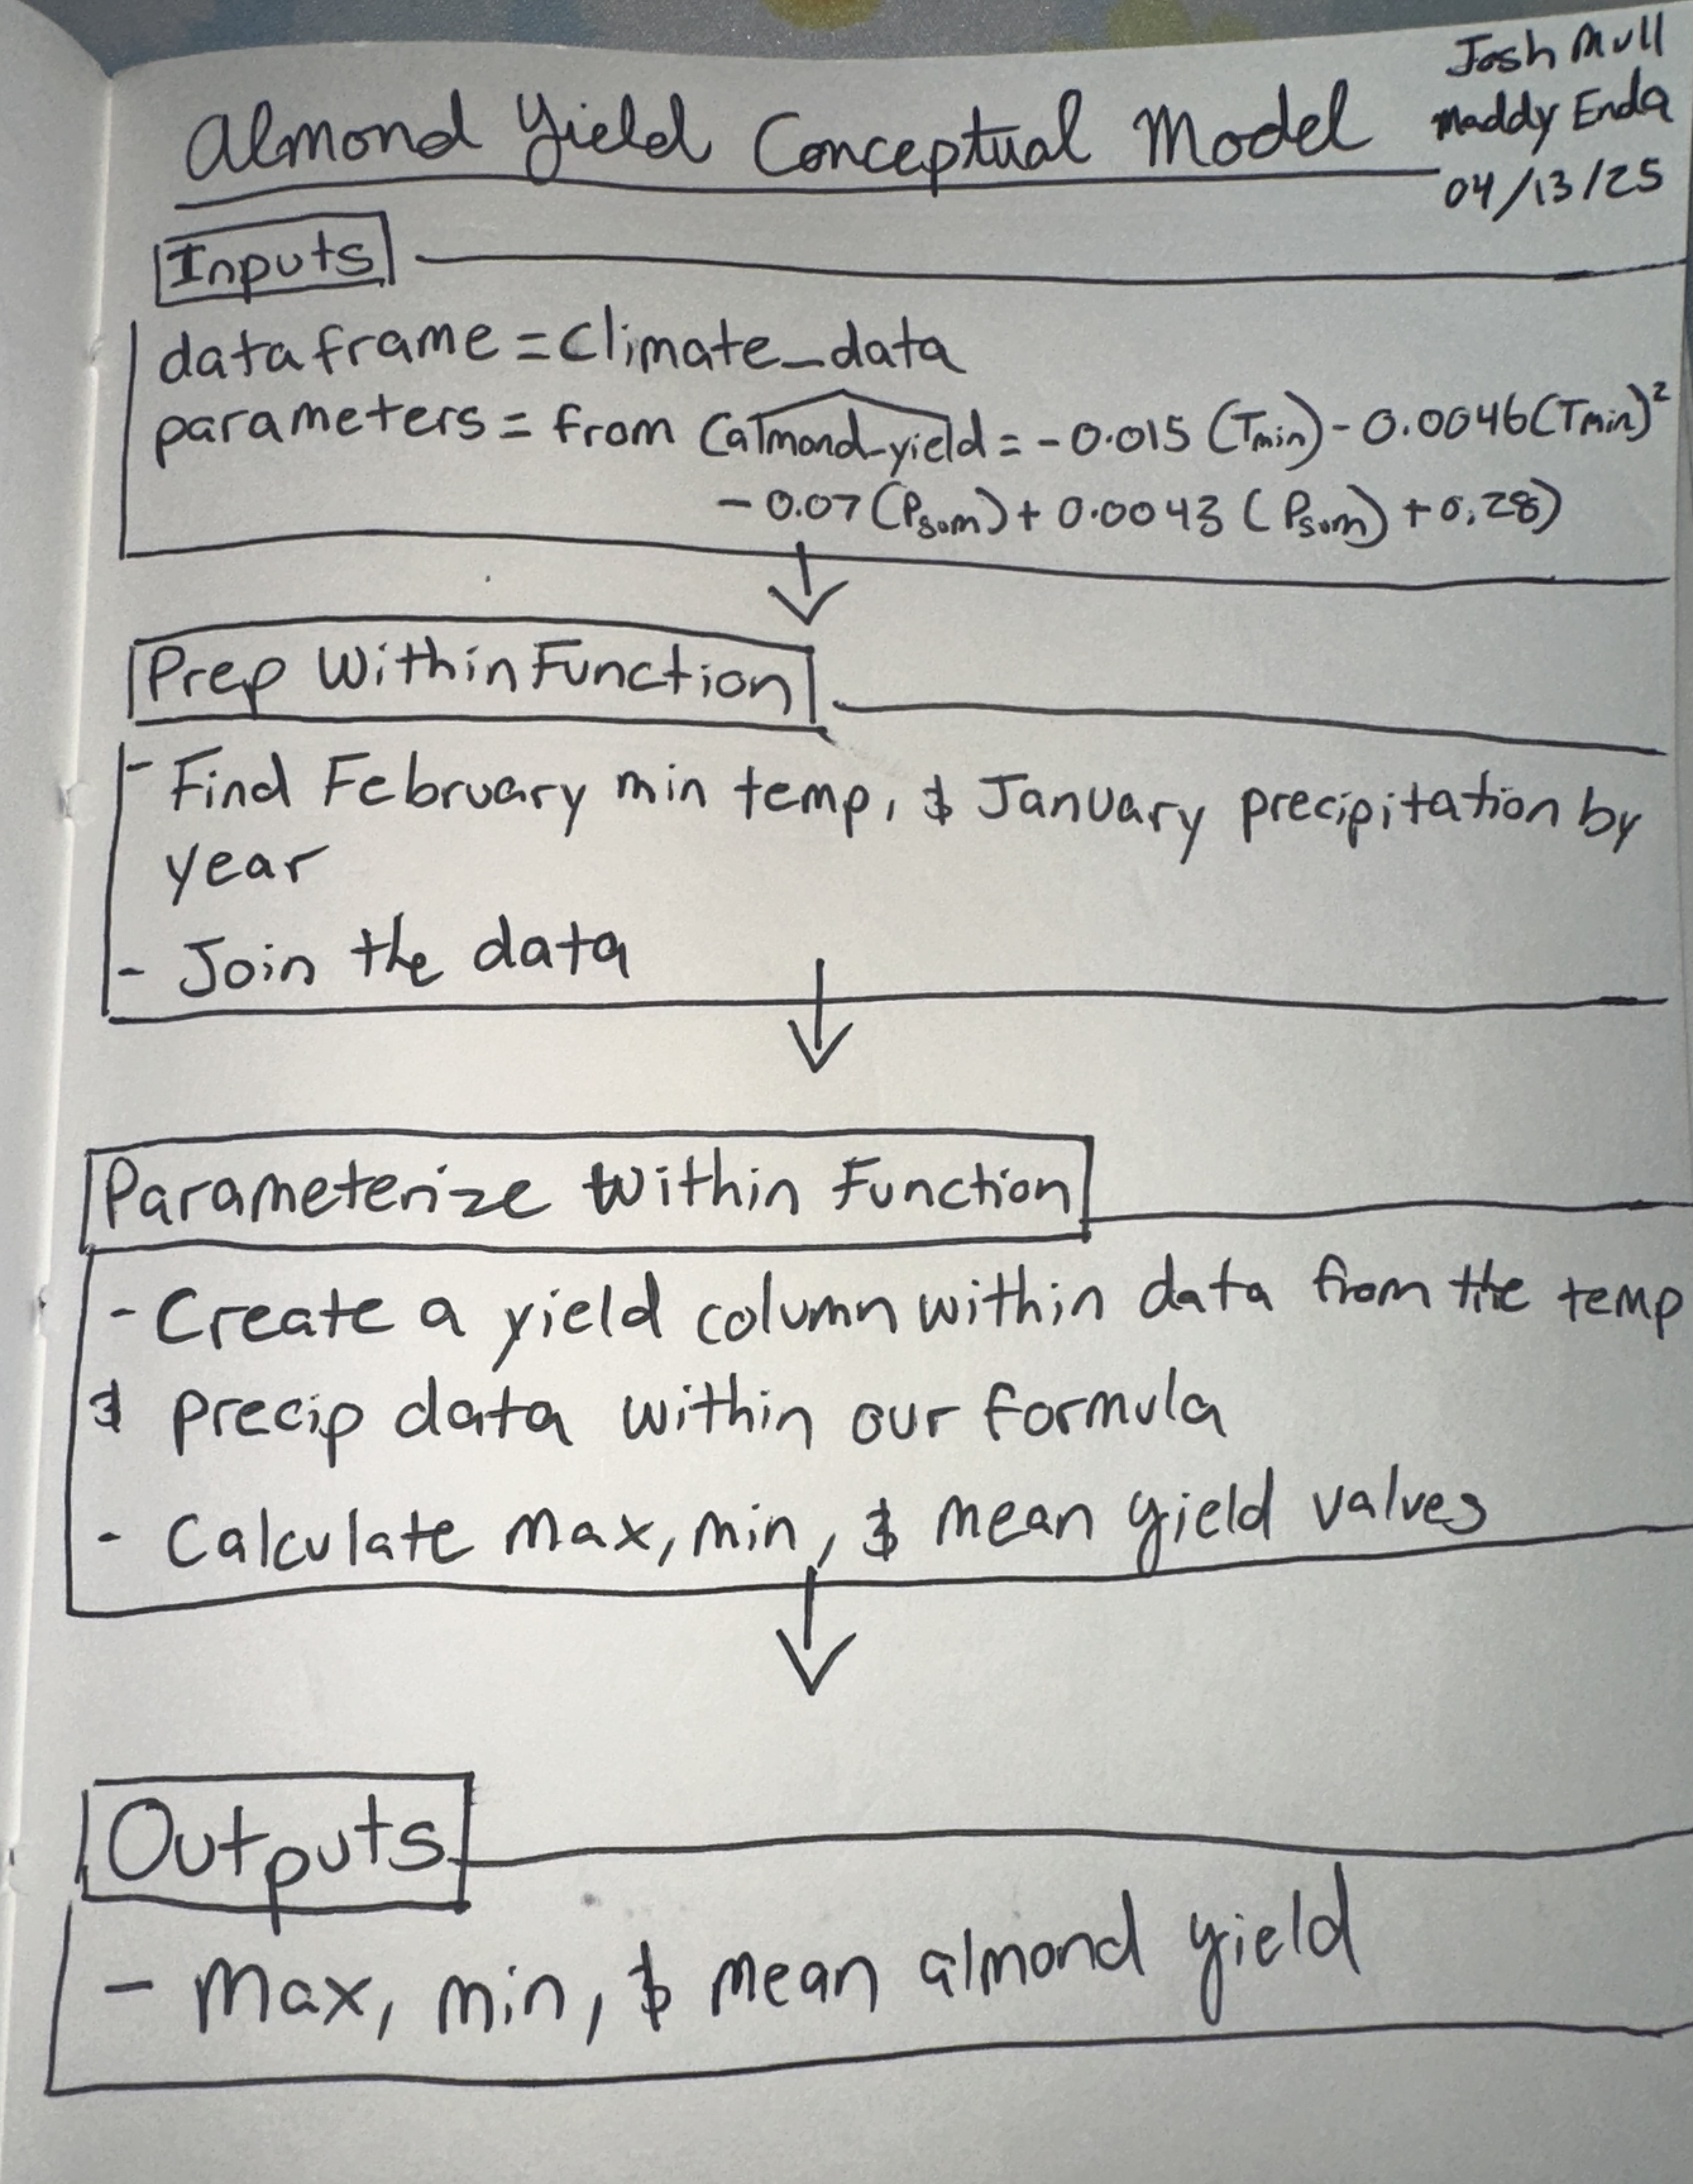 Almond Yield Conceptual Model
Josh Mull
Maddy Enda
04/13/25
Inputs
dataframe = climate_data
parameters = from (almond_yield = -0.015 (Tmin) - 0.0046(Tmin)²
- 0.07 (Psum) + 0.0043 (Psum) + 0.28)
Prep Within Function
- Find February min temp, & January precipitation by
year
- Join the data
Parameterize Within Function
- Create a yield column within data from the temp
& precip data within our formula
- Calculate max, min, & mean yield values
Outputs
- Max, min, & mean almond yield